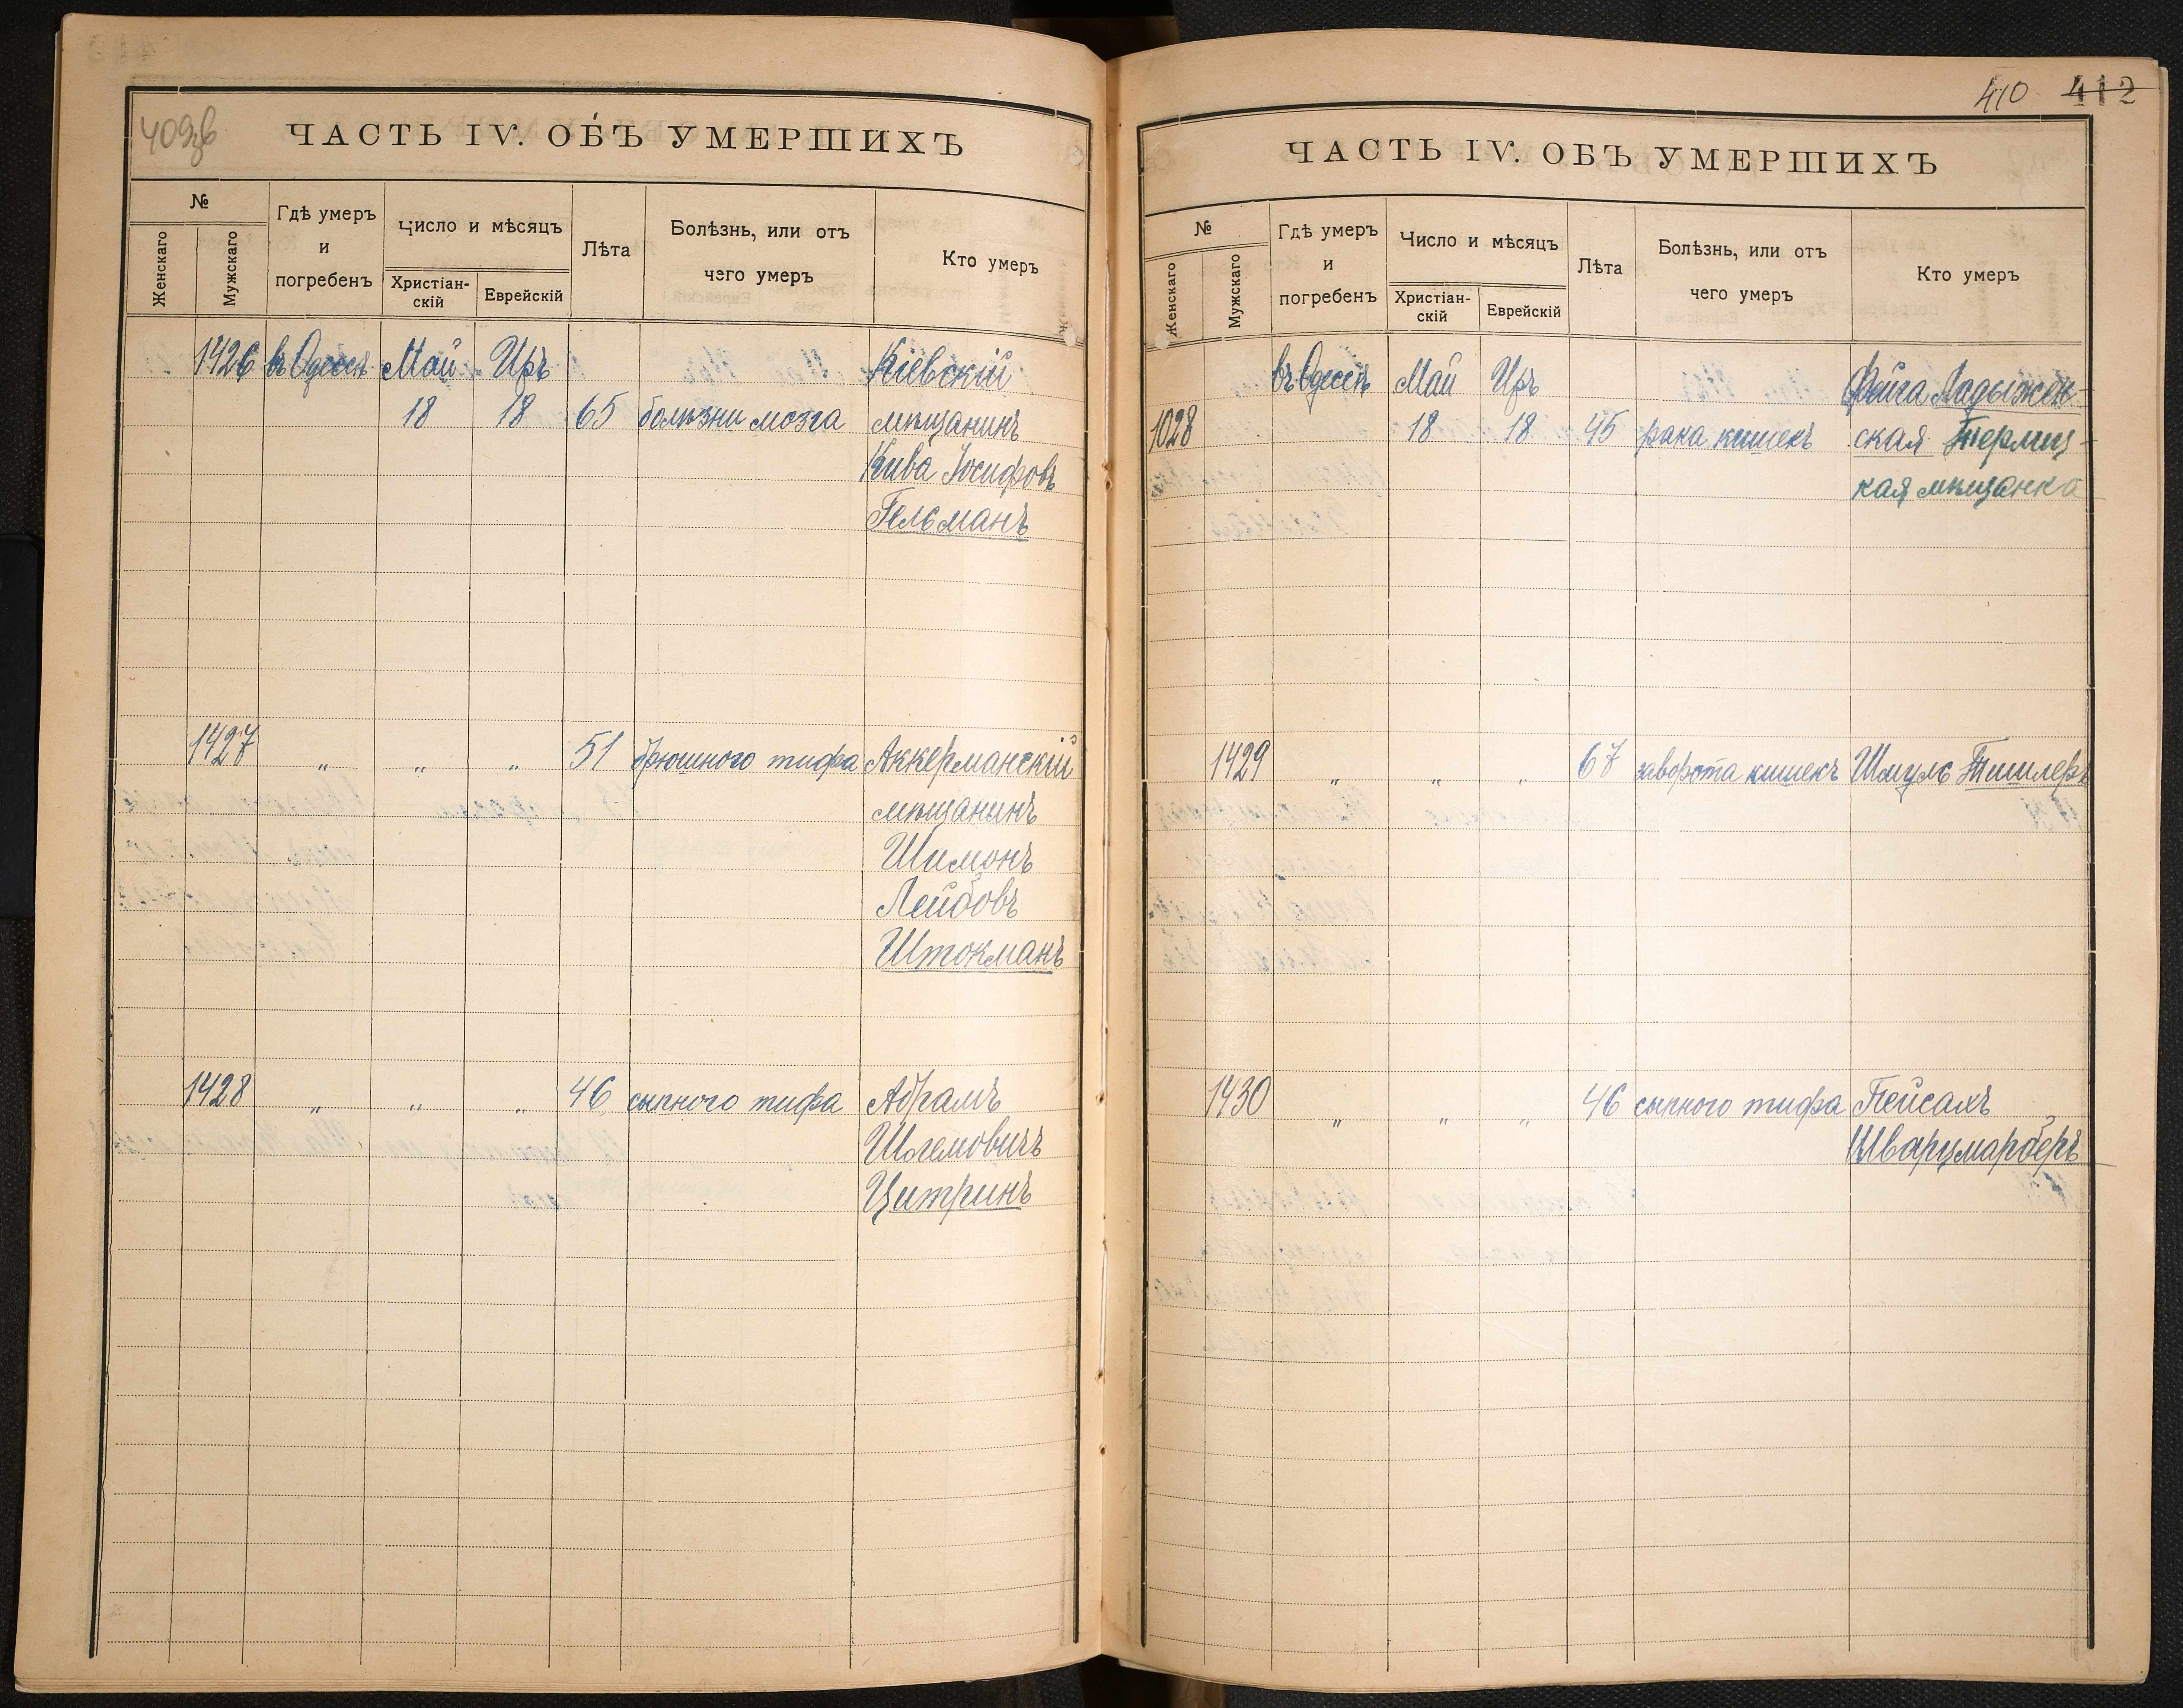 409зв
ЧАСТЬ IV. ОБЪ УМЕРШИХЪ
№
Женскаго
Мужскаго
Гдѣ умеръ
и
погребенъ
Число и мѣсяцъ
Христіан-
скій
Еврейскій
Лѣта
Болѣзнь, или отъ
чего умеръ
Кто умеръ
1426 въ Одессѣ Май Иръ Кіевскій
18 18 65 болѣзни мозга мѣщанинъ
Кива Іосифовъ
Гельманъ
1427 „ „ „ 51 брюшного тифа Аккерманскій
мѣщанинъ
Шимонъ
Лейбовъ
Штокманъ
1428 „ „ „ 46 сыпного тифа Абрамъ
Шлемовичъ
Цитринъ
410 412
ЧАСТЬ IV. ОБЪ УМЕРШИХЪ
№
Женскаго
Мужскаго
Гдѣ умеръ
и
погребенъ
Число и мѣсяцъ
Христіан-
скій
Еврейскій
Лѣта
Болѣзнь, или отъ
чего умеръ
Кто умеръ
въ Одессѣ Май Иръ Фейга Ладыжен-
1028 18 18 45 рака кишекъ ская
кая мѣщанка
1429 „ „ „ 67 заворота кишекъ Шмуль Тишлеръ
1430 „ „ „ 46 сыпного тифа Пейсахъ
Шварцмарберъ